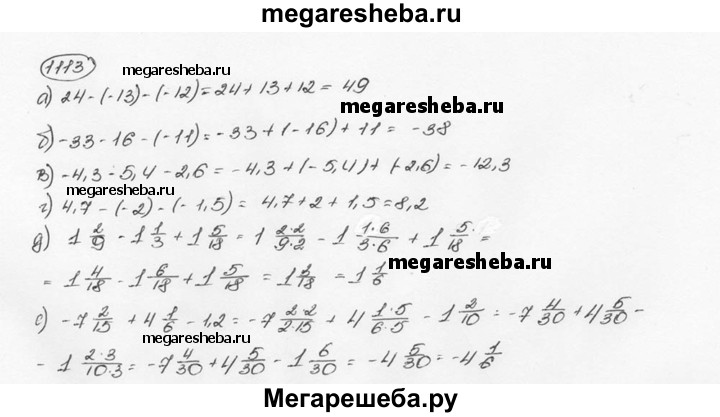 megaresheba.ru
1113
megaresheba.ru
а) 24 - (-13) - (-12) = 24 + 13 + 12 = 49
б) -33 - 16 - (-11) = -33 + (-16) + 11 = -38
в) -4,3 - 5,4 - 2,6 = -4,3 + (-5,4) + (-2,6) = -12,3
megaresheba.ru
г) 4,7 - (-2) - (-1,5) = 4,7 + 2 + 1,5 = 8,2
д) 1 2/9 - 1 1/3 + 1 5/18 = 1 2·2/9·2 - 1 1·6/3·6 + 1 5/18 =
= 1 4/18 - 1 6/18 + 1 5/18 = 1 3/18 = 1 1/6
megaresheba.ru
е) -7 2/15 + 4 1/6 - 1,2 = -7 2·2/2·15 + 4 1·5/6·5 - 1 2/10 = -7 4/30 + 4 5/30 -
- 1 2·3/10·3 = -7 4/30 + 4 5/30 - 1 6/30 = -4 5/30 = -4 1/6
megaresheba.ru
Мегарешеба.ру